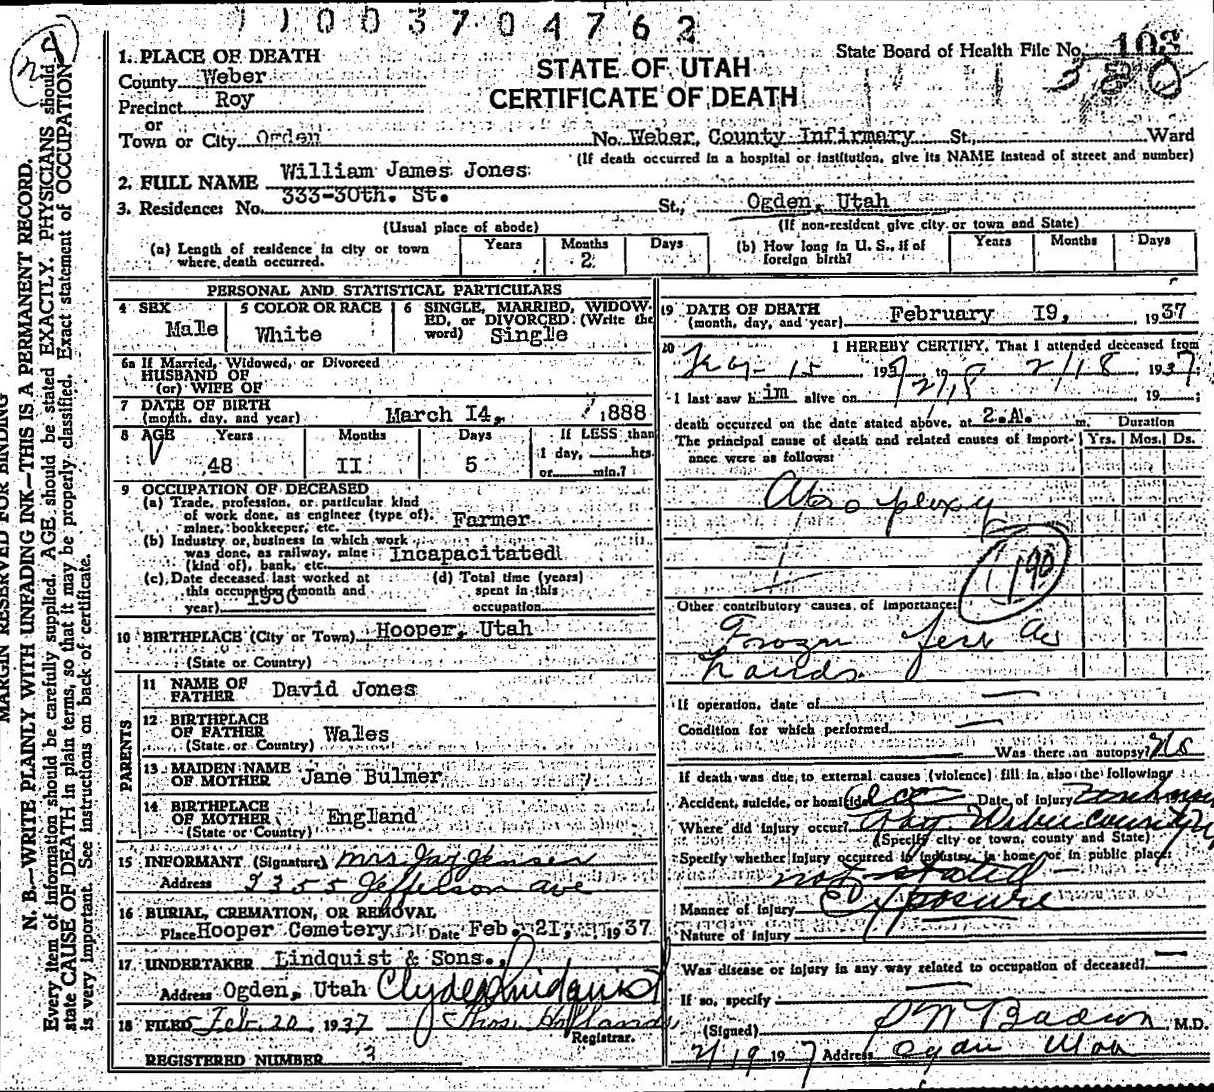 1003704762
State Board of Health File No. 103
STATE OF UTAH
CERTIFICATE OF DEATH
1. PLACE OF DEATH
County Weber
Precinct Roy
or
Town or City Ogden No. Weber County Infirmary St., Ward
(If death occurred in a hospital or institution, give its NAME instead of street and number)
2. FULL NAME William James Jones
3. Residence: No. 333-30th. St. St., Ogden, Utah
(Usual place of abode) (If non-resident give city or town and State)
(a) Length of residence in city or town where death occurred. Years Months 2 Days
(b) How long in U. S., if of foreign birth? Years Months Days
PERSONAL AND STATISTICAL PARTICULARS
4 SEX Male
5 COLOR OR RACE White
6 SINGLE, MARRIED, WIDOWED, or DIVORCED (Write the word) Single
6a If Married, Widowed, or Divorced
HUSBAND OF
(or) WIFE OF
7 DATE OF BIRTH
(month, day, and year) March I4, 1888
8 AGE Years 48 Months II Days 5
If LESS than
1 day, hrs.
or min.?
9 OCCUPATION OF DECEASED
(a) Trade, profession, or particular kind
of work done, as engineer (type of),
miner, bookkeeper, etc. Farmer
(b) Industry or business in which work
was done, as railway, mine
(kind of), bank, etc. Incapacitated
(c) Date deceased last worked at
this occupation (month and
year)
(d) Total time (years)
spent in this
occupation
10 BIRTHPLACE (City or Town) Hooper, Utah
(State or Country)
PARENTS
11 NAME OF FATHER David Jones
12 BIRTHPLACE OF FATHER Wales
(State or Country)
13 MAIDEN NAME OF MOTHER Jane Bulmer
14 BIRTHPLACE OF MOTHER England
(State or Country)
15 INFORMANT (Signature) Mrs Jay Jensen
Address 2355 Jefferson ave
16 BURIAL, CREMATION, OR REMOVAL
Place Hooper Cemetery Date Feb. 21, 1937
17 UNDERTAKER Lindquist & Sons.,
Address Ogden, Utah Clyde Lindquist
18 FILED Feb. 20, 1937 Thos. Holland
Registrar.
REGISTERED NUMBER 3
19 DATE OF DEATH
(month, day, and year) February I9, 1937
20 I HEREBY CERTIFY, That I attended deceased from
193 to 2/18, 1937;
I last saw him alive on 2/18 19 ;
death occurred on the date stated above, at 2.A. m.
Duration
The principal cause of death and related causes of importance were as follows: Yrs. Mos. Ds.
Apoplexy
Other contributory causes of importance:
Frozen feet
hands.
If operation, date of
Condition for which performed
Was there an autopsy? No
If death was due to external causes (violence) fill in also the following:
Accident, suicide, or homicide Date of injury
Where did injury occur? Weber county
(Specify city or town, county and State)
Specify whether injury occurred in industry, in home, or in public place:
not stated
Manner of injury Exposure
Nature of injury
Was disease or injury in any way related to occupation of deceased?
If so, specify
(Signed) M.D.
2/19 1937 Address Ogden Utah
MARGIN RESERVED FOR BINDING
N. B.—WRITE PLAINLY WITH UNFADING INK—THIS IS A PERMANENT RECORD.
Every item of information should be carefully supplied. AGE should be stated EXACTLY. PHYSICIANS should
state CAUSE OF DEATH in plain terms, so that it may be properly classified. Exact statement of OCCUPATION
is very important. See instructions on back of certificate.